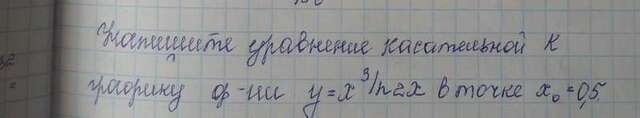 Напишите уравнение касательной к
графику ф-ии y=x³ln2x в точке x₀=0,5.